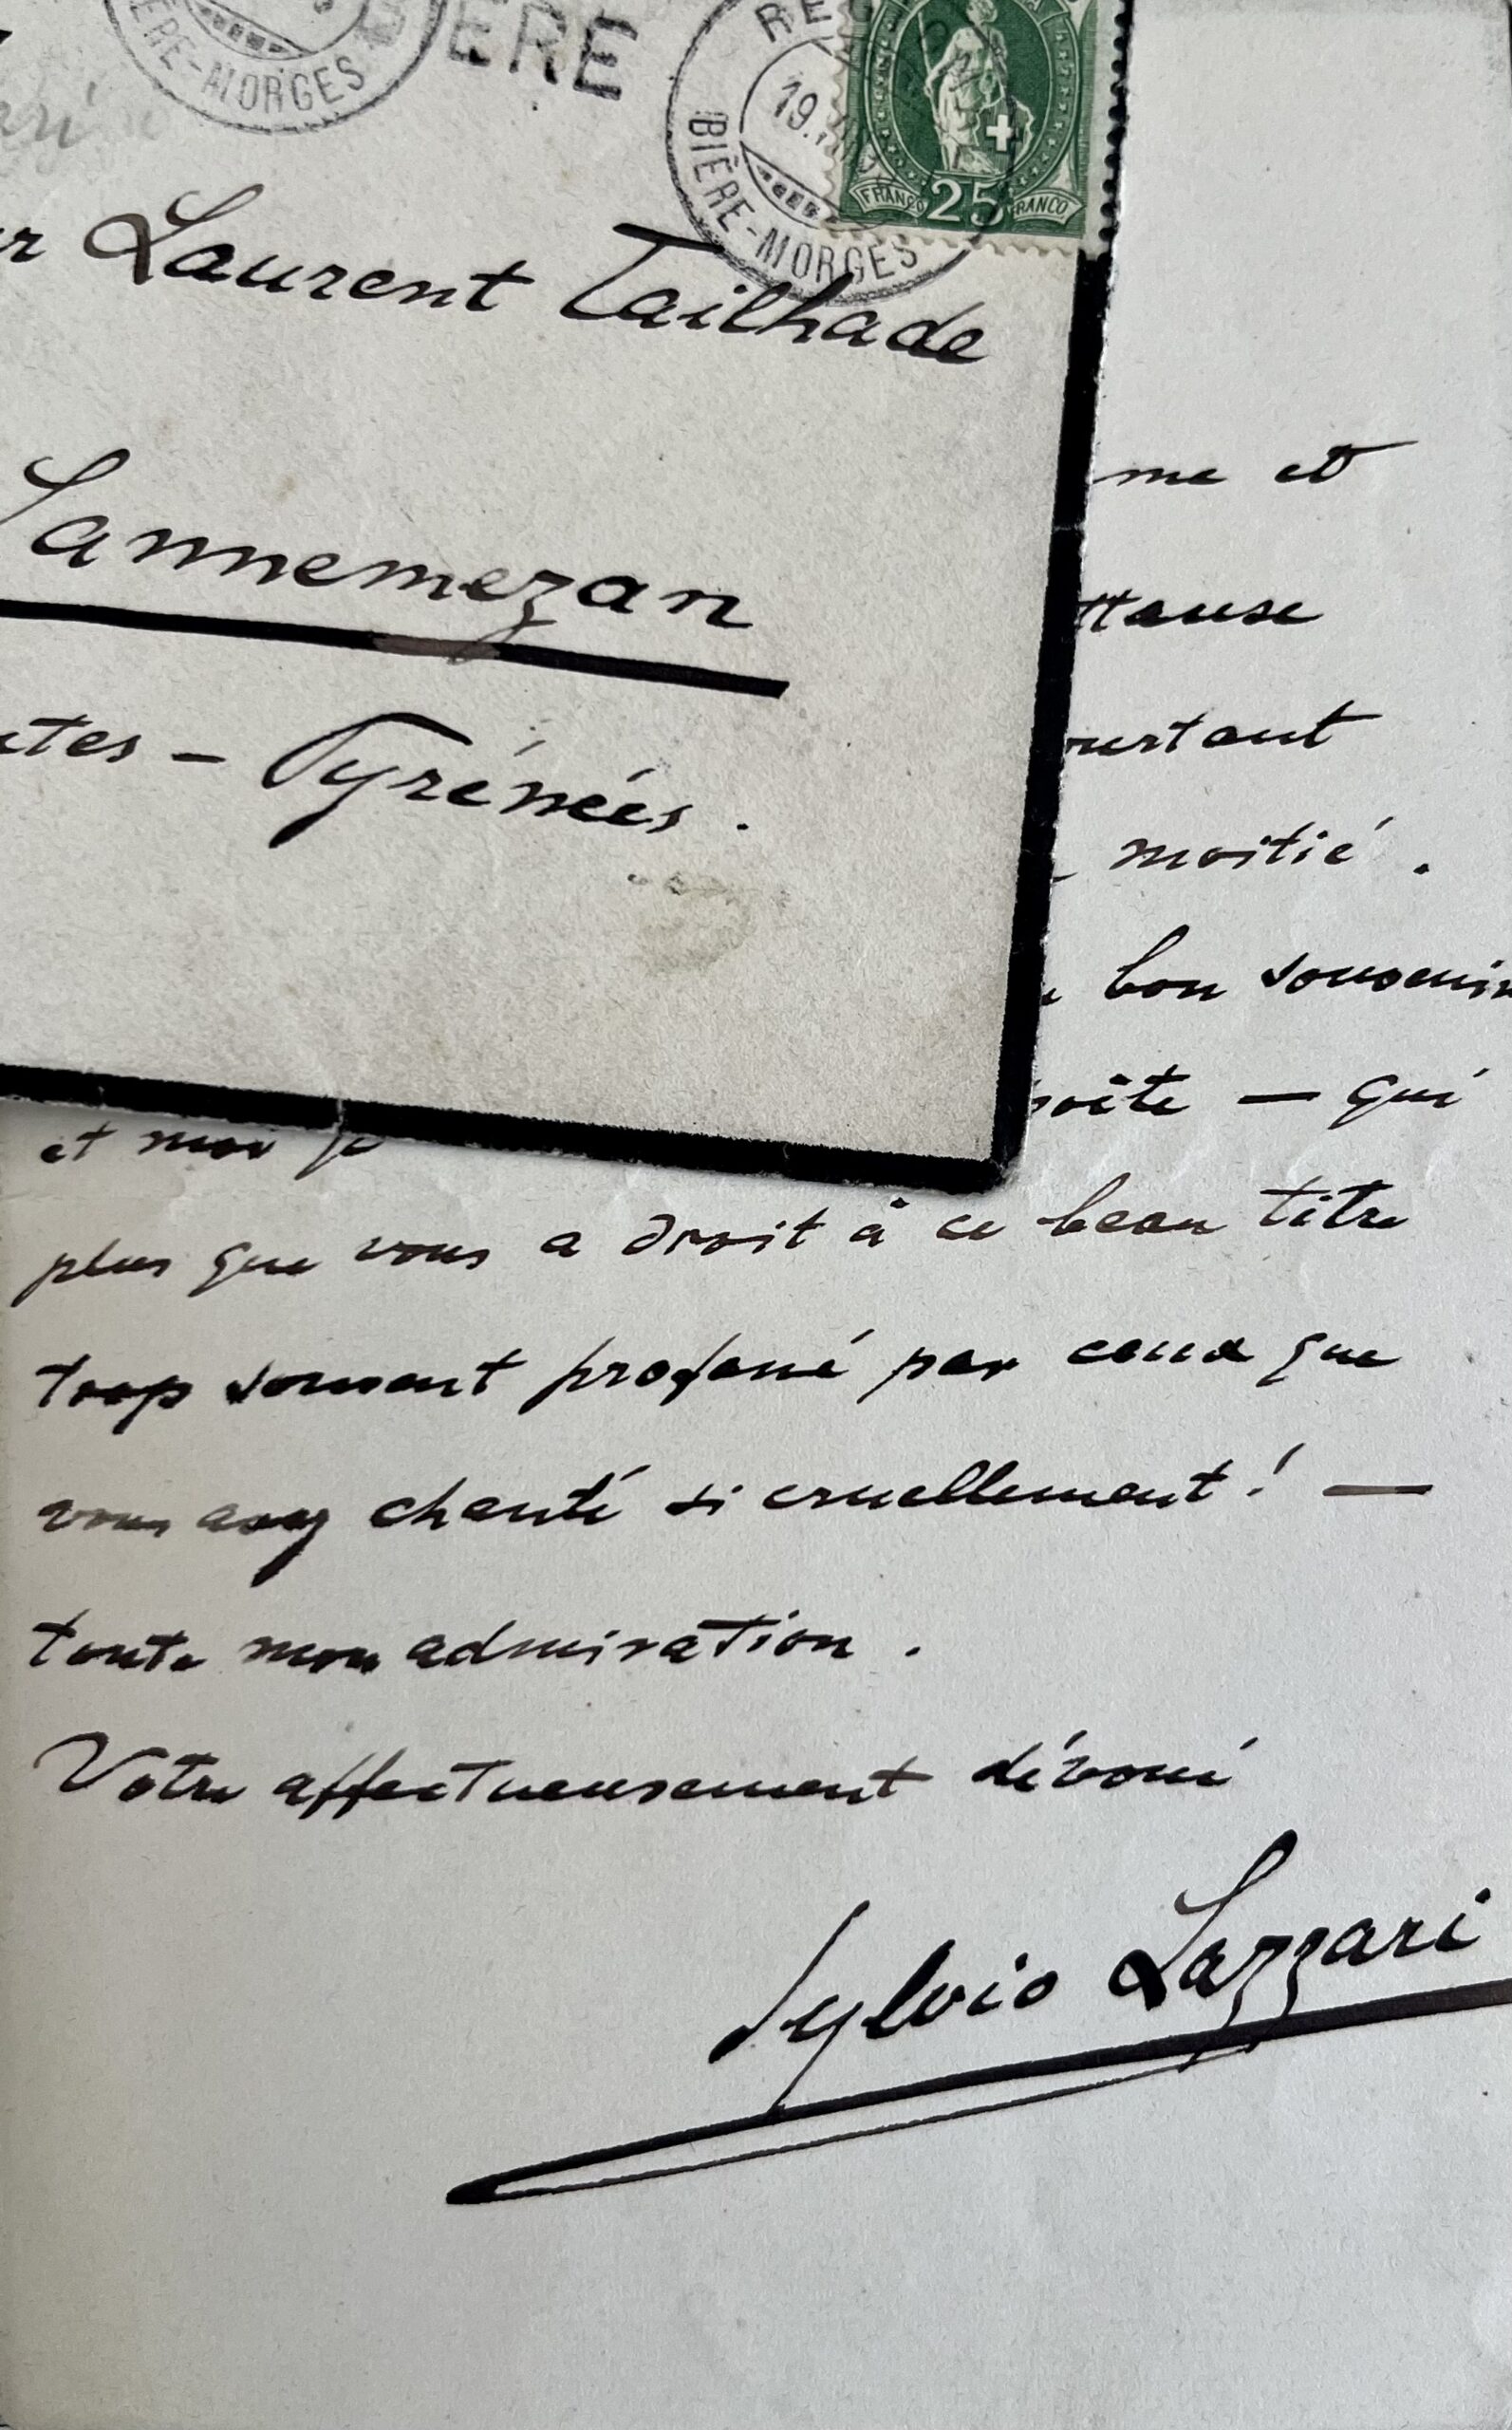 BIÈRE-MORGES
BIÈRE
19.
BIÈRE-MORGES
FRANCO 25 FRANCO
Laurent Tailhade
Lannemezan
utes - Pyrénées.
me et
ourtant
moitié.
bon souvenir
oite — qui
et moi je
plus que vous a droit à ce beau titre
trop souvent profané par ceux que
vous avez chanté si cruellement! —
toute mon admiration.
Votre affectueusement dévoué
Sylvio Lazzari